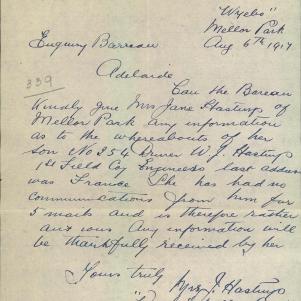 "Wyebo"
Mellor Park
Aug 6th 1917
Enquiry Bureau
Adelaide
339
Can the Bureau
kindly give Mrs Jane Hastings of
Mellor Park any information
as to the whereabouts of her
son No 254 Driver W. J. Hastings
1st Field Coy Engineers last address
was France She has had no
communications from him for
5 mails and is therefore rather
anxious Any information will
be thankfully received by her
Yours truly
Mrs J. Hastings